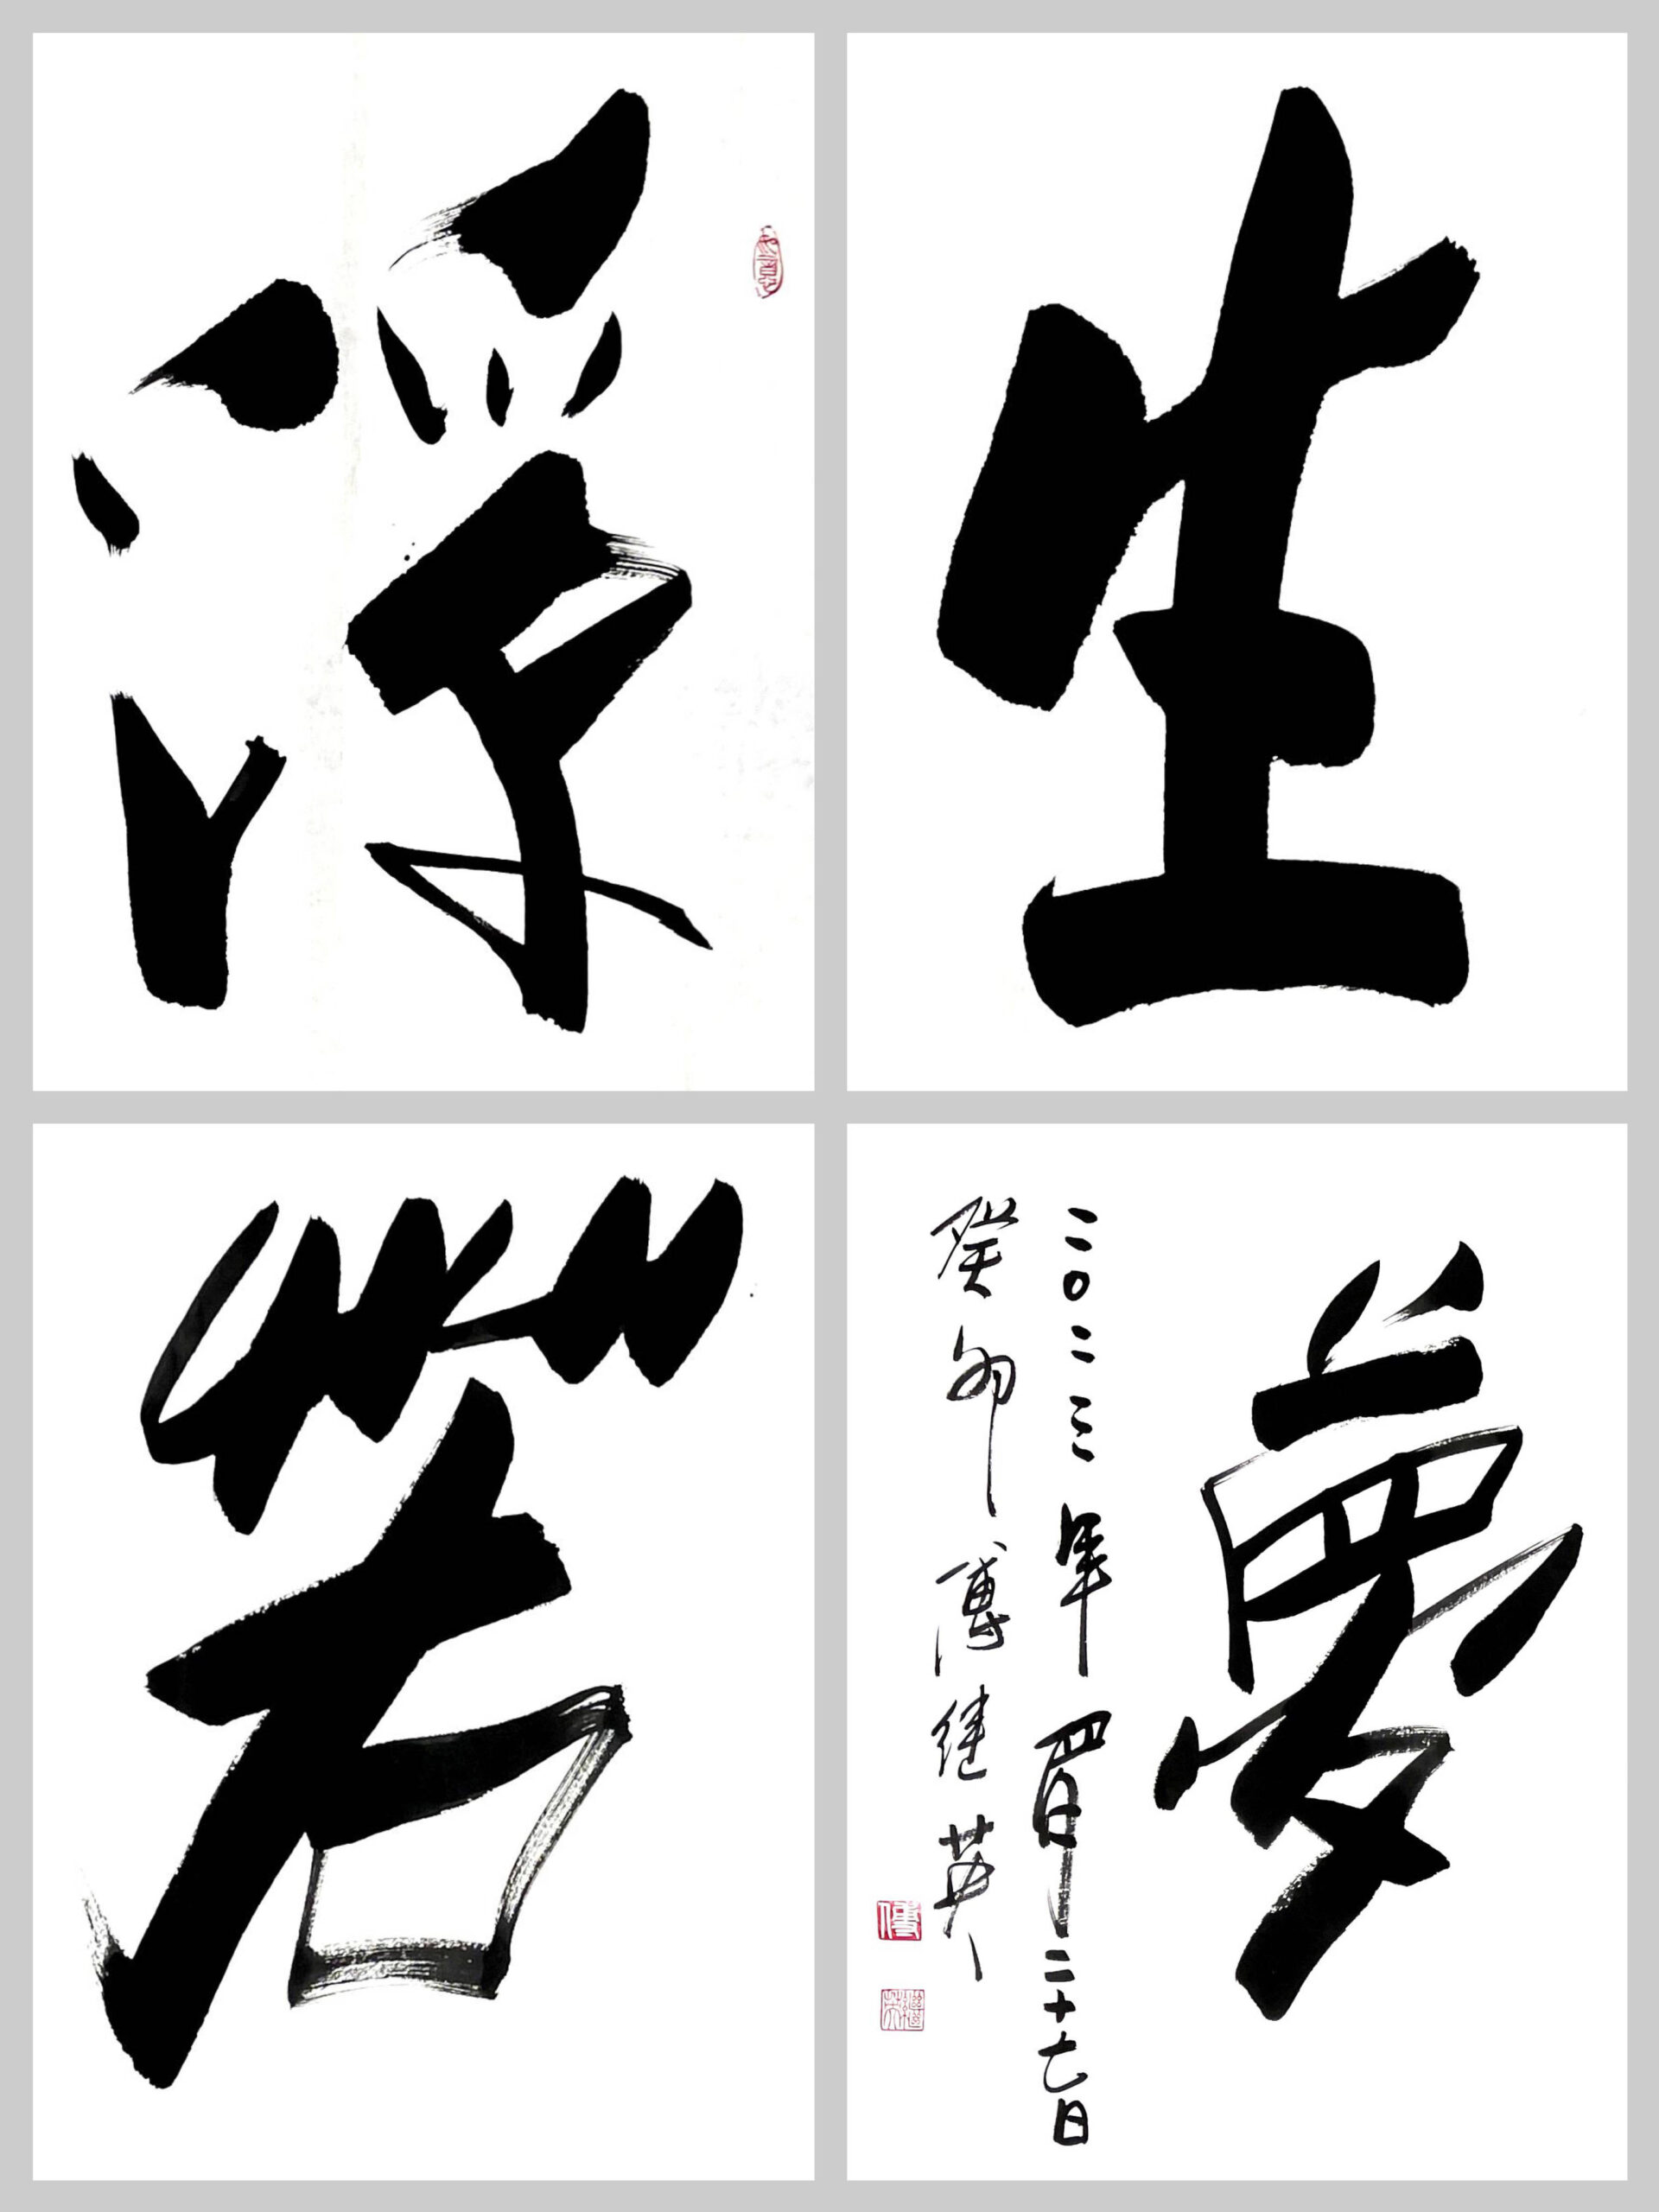 浮
生
若
夢
二〇二三年四月二十七日
癸卯 傅继英